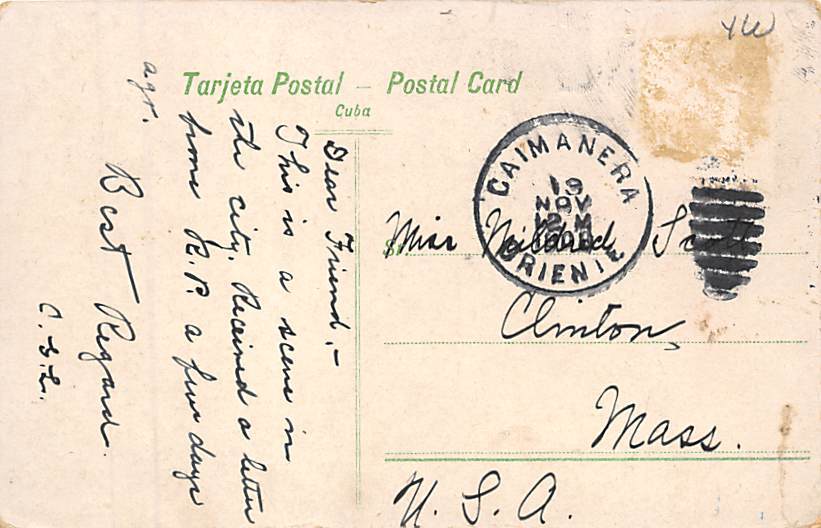 YW
Tarjeta Postal – Postal Card
Cuba
Dear Friend,–
This is a scene in
the city. Received a letter
from R.P. a few days
ago.
Best Regard.
CAIMANERA
19
NOV
12 M
ORIENTE
Miss Mildred Scott
Clinton,
Mass.
U.S.A.